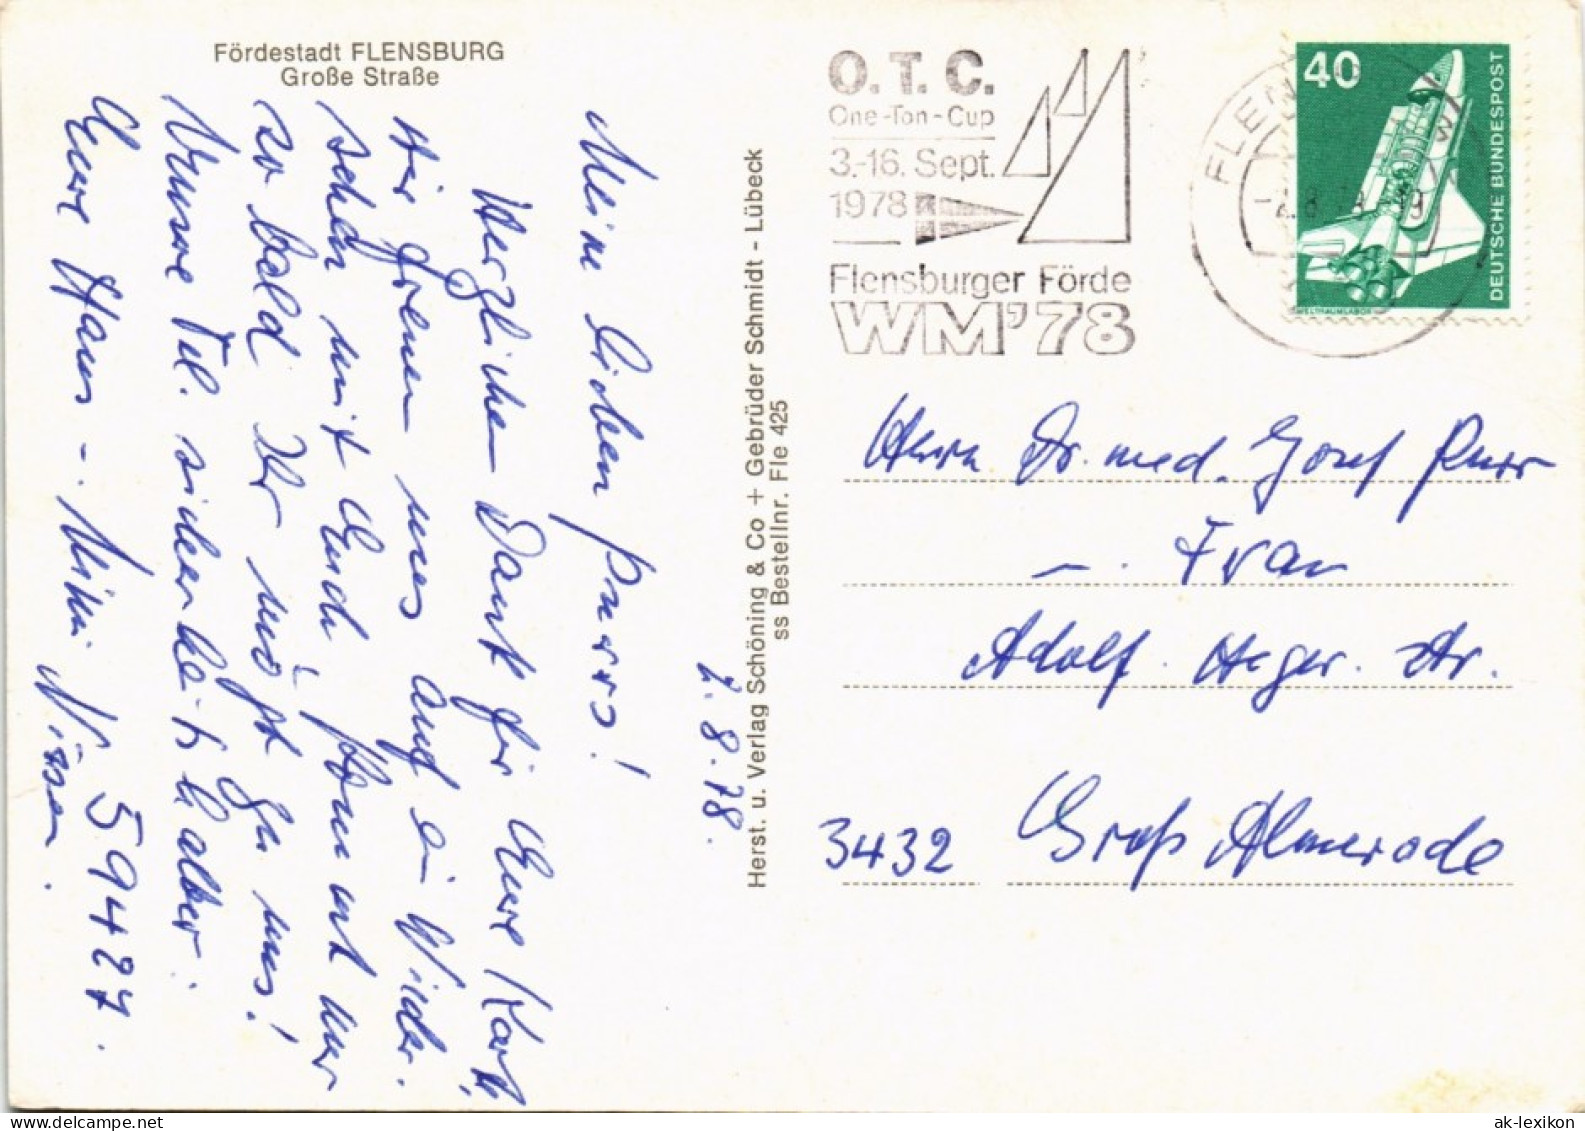 Fördestadt FLENSBURG
Große Straße
2.8.78.
Meine lieben Purrs!
Herzlichen Dank für Eure Karte,
wir freuen uns auf ein Wieder-
sehen mit Euch, kommt nur
so bald Ihr mögt zu uns!
Unsere Tel. sicherheitshalber:
59427.
Eure Hans - Nissen.
Herst. u. Verlag Schöning & Co + Gebrüder Schmidt - Lübeck
ss Bestellnr. Fle 425
O.T.C.
One-Ton-Cup
3.-16. Sept.
1978
Flensburger Förde
WM'78
FLEN
40
DEUTSCHE BUNDESPOST
WELTRAUMLABOR
Herrn Dr. med. Josef Purr
-. Frau
Adolf. Heger. Str.
3432 Groß Almerode
ak-lexikon